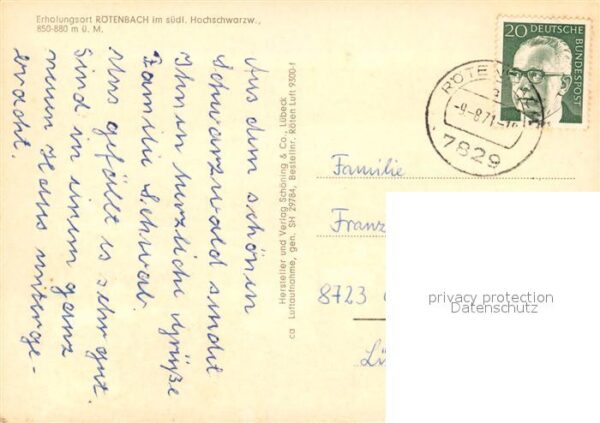 Erholungsort RÖTENBACH im südl. Hochschwarzw.,
850-880 m ü. M.
Aus dem schönen
Schwarzwald sendet
Ihnen herzliche Grüße
Familie Schwab.
Uns gefällt es sehr gut.
Sind in einem ganz
neuen Haus unterge-
bracht.
Hersteller und Verlag Schöning & Co., Lübeck
Luftaufnahme, gen. SH 29784, Bestellnr. Röten Luft 9500-1
ca
20 DEUTSCHE BUNDESPOST
RÖTEN
-9.-8.71.-1
7829
Familie
Franz
8723
privacy protection
Datenschutz